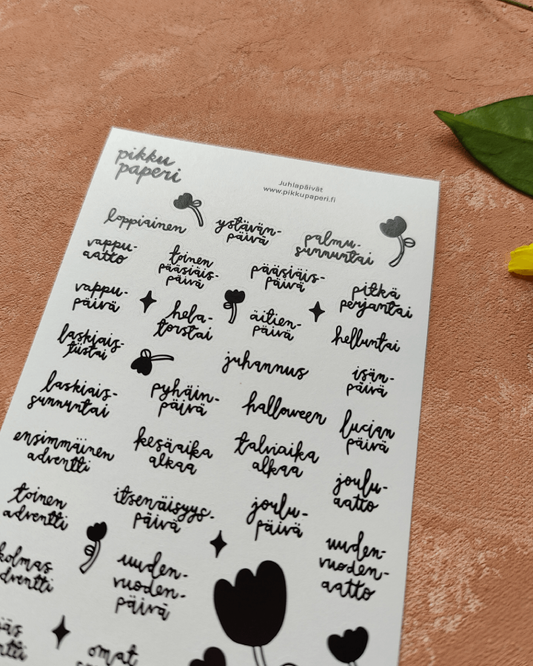 pikku
paperi
Juhlapäivät
www.pikkupaperi.fi
loppiainen
ystävän-
päivä
palmu-
sunnuntai
vappu-
aatto
toinen
pääsiäis-
päivä
pääsiäis-
päivä
pitkä
perjantai
vappu-
päivä
hela-
torstai
äitien-
päivä
helluntai
laskiais-
tiistai
juhannus
isän-
päivä
laskiais-
sunnuntai
pyhäin-
päivä
halloween
lucian
päivä
ensimmäinen
adventti
kesäaika
alkaa
talviaika
alkaa
joulu-
aatto
toinen
adventti
itsenäisyys-
päivä
joulu-
päivä
uuden-
vuoden-
aatto
kolmas
adventti
uuden-
vuoden-
päivä
omat